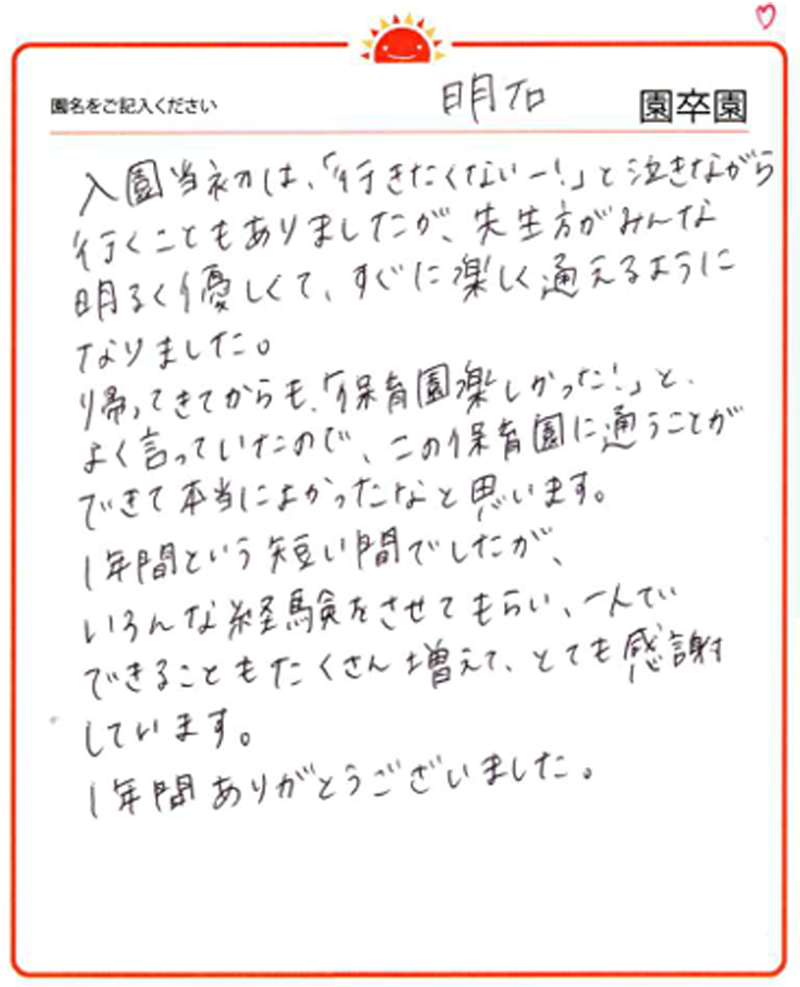 園名をご記入ください 明石 園卒園
入園当初は、「行きたくないー!」と泣きながら
行くこともありましたが、先生方がみんな
明るく優しくて、すぐに楽しく通えるように
なりました。
帰ってきてからも、「保育園楽しかった!」と、
よく言っていたので、この保育園に通うことが
できて本当によかったなと思います。
1年間という短い間でしたが、
いろんな経験をさせてもらい、一人で
できることもたくさん増えて、とても感謝
しています。
1年間ありがとうございました。